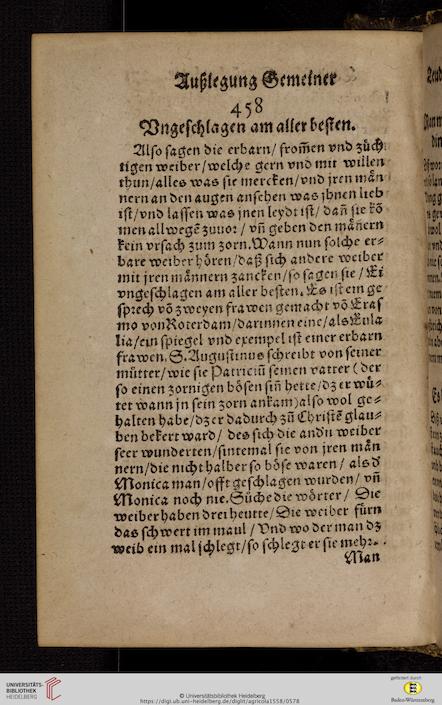 Außlegung Gemeiner
458
Vngeschlagen am aller besten.
Also sagen die erbarn/ from̃en vnd züch
tigen weiber/welche gern vnd mit willen
thun/alles was sie mercken/vnd jren män
nern an den augen ansehen was jhnen lieb
ist/vnd lassen was jnen leydt ist/ dañ sie kõ
men allwegẽ zuuor/ vñ geben den männern
kein vrsach zum zorn. Wann nun solche er=
bare weiber hören/daß sich andere weiber
mit jren männern zancken/so sagen sie/ Ei
vngeschlagen am aller besten. Es ist ein ge
sprech võ zweyen frawen gemacht võ Eras
mo von Roterdam/darinnen eine/als Eula
lia/ein spiegel vnd exempel ist einer erbarn
frawen. S. Augustinus schreibt von seiner
mütter/wie sie Patriciũ seinen vatter (der
so einen zornigen bösen siñ hette/dz er wü=
tet wann jn sein zorn ankam) also wol ge=
halten habe/dz er dadurch zů Christẽ glau=
ben bekert ward/ des sich die andñ weiber
seer wunderten/sintemal sie von jren män
nern/die nicht halber so böse waren/ als d
Monica man/offt geschlagen wurden/ vñ
Monica noch nie. Süche die wörter/ Die
weiber haben drei heutte/Die weiber fürn
das schwert im maul/ Vnd wo der man dz
weib ein mal schlegt/so schlegt er sie mehr.
Man
UNIVERSITÄTS-
BIBLIOTHEK
HEIDELBERG
© Universitätsbibliothek Heidelberg
https://digi.ub.uni-heidelberg.de/diglit/agricola1558/0578
gefördert durch
Baden-Württemberg